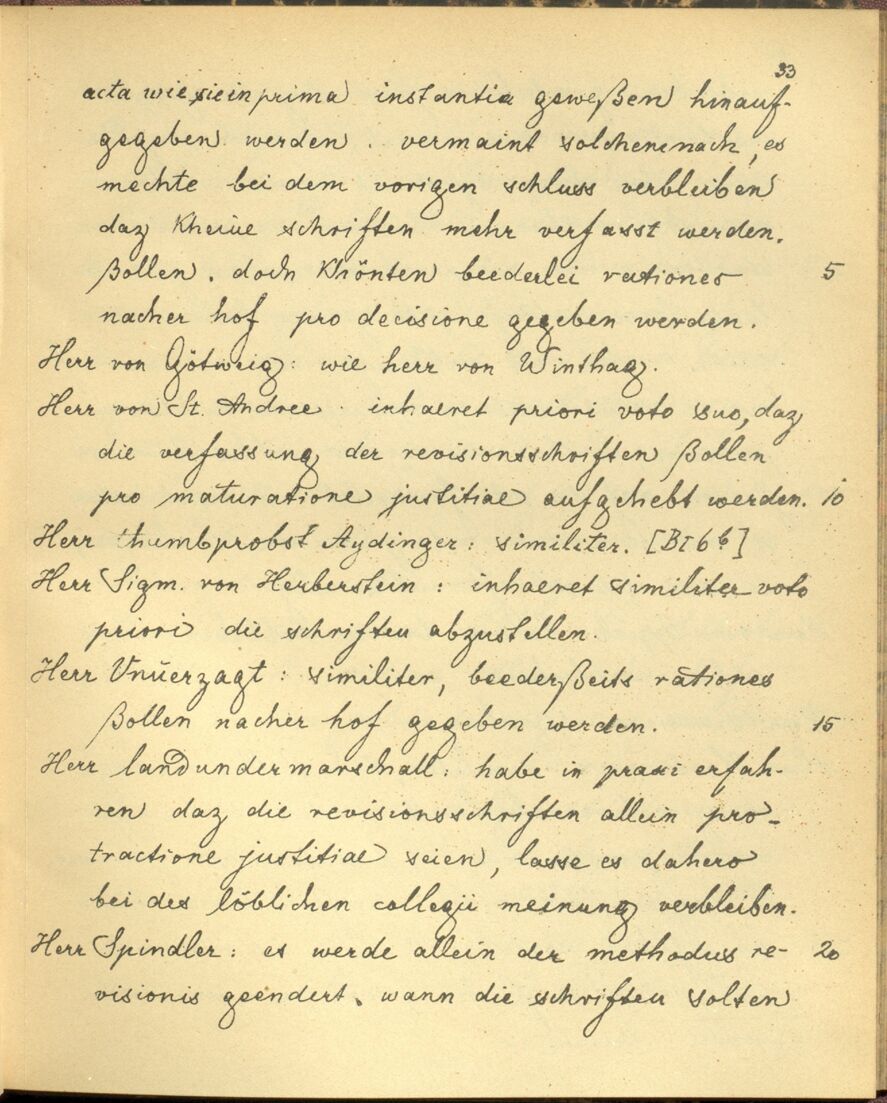 33
acta wie sie in prima instantia geweßen hinauf-
gegeben werden. vermaint solchemnach, es
mechte bei dem vorigen schluss verbleiben
daz kheine schriften mehr verfasst werden.
ßollen. doch khönten beederlei rationes 5
nacher hof pro decisione gegeben werden.
Herr von Götweig: wie herr von Winthag.
Herr von St. Andree. inhaeret priori voto suo, daz
die verfassung der revisionsschriften ßollen
pro maturatione justitiae aufgehebt werden. 10
Herr thumbprobst Aydinger: similiter. [BI 6b]
Herr Sigm. von Herberstein: inhaeret similiter voto
priori die schriften abzustellen.
Herr Unüerzagt: similiter, beederßeits rationes
ßollen nacher hof gegeben werden. 15
Herr landundermarschall: habe in praxi erfah-
ren daz die revisionsschriften allein pro-
tractione justitiae seien, lasse es dahero
bei des löblichen collegii meinung verbleiben.
Herr Spindler: es werde allein der methodus re- 20
visionis geendert, wann die schriften solten